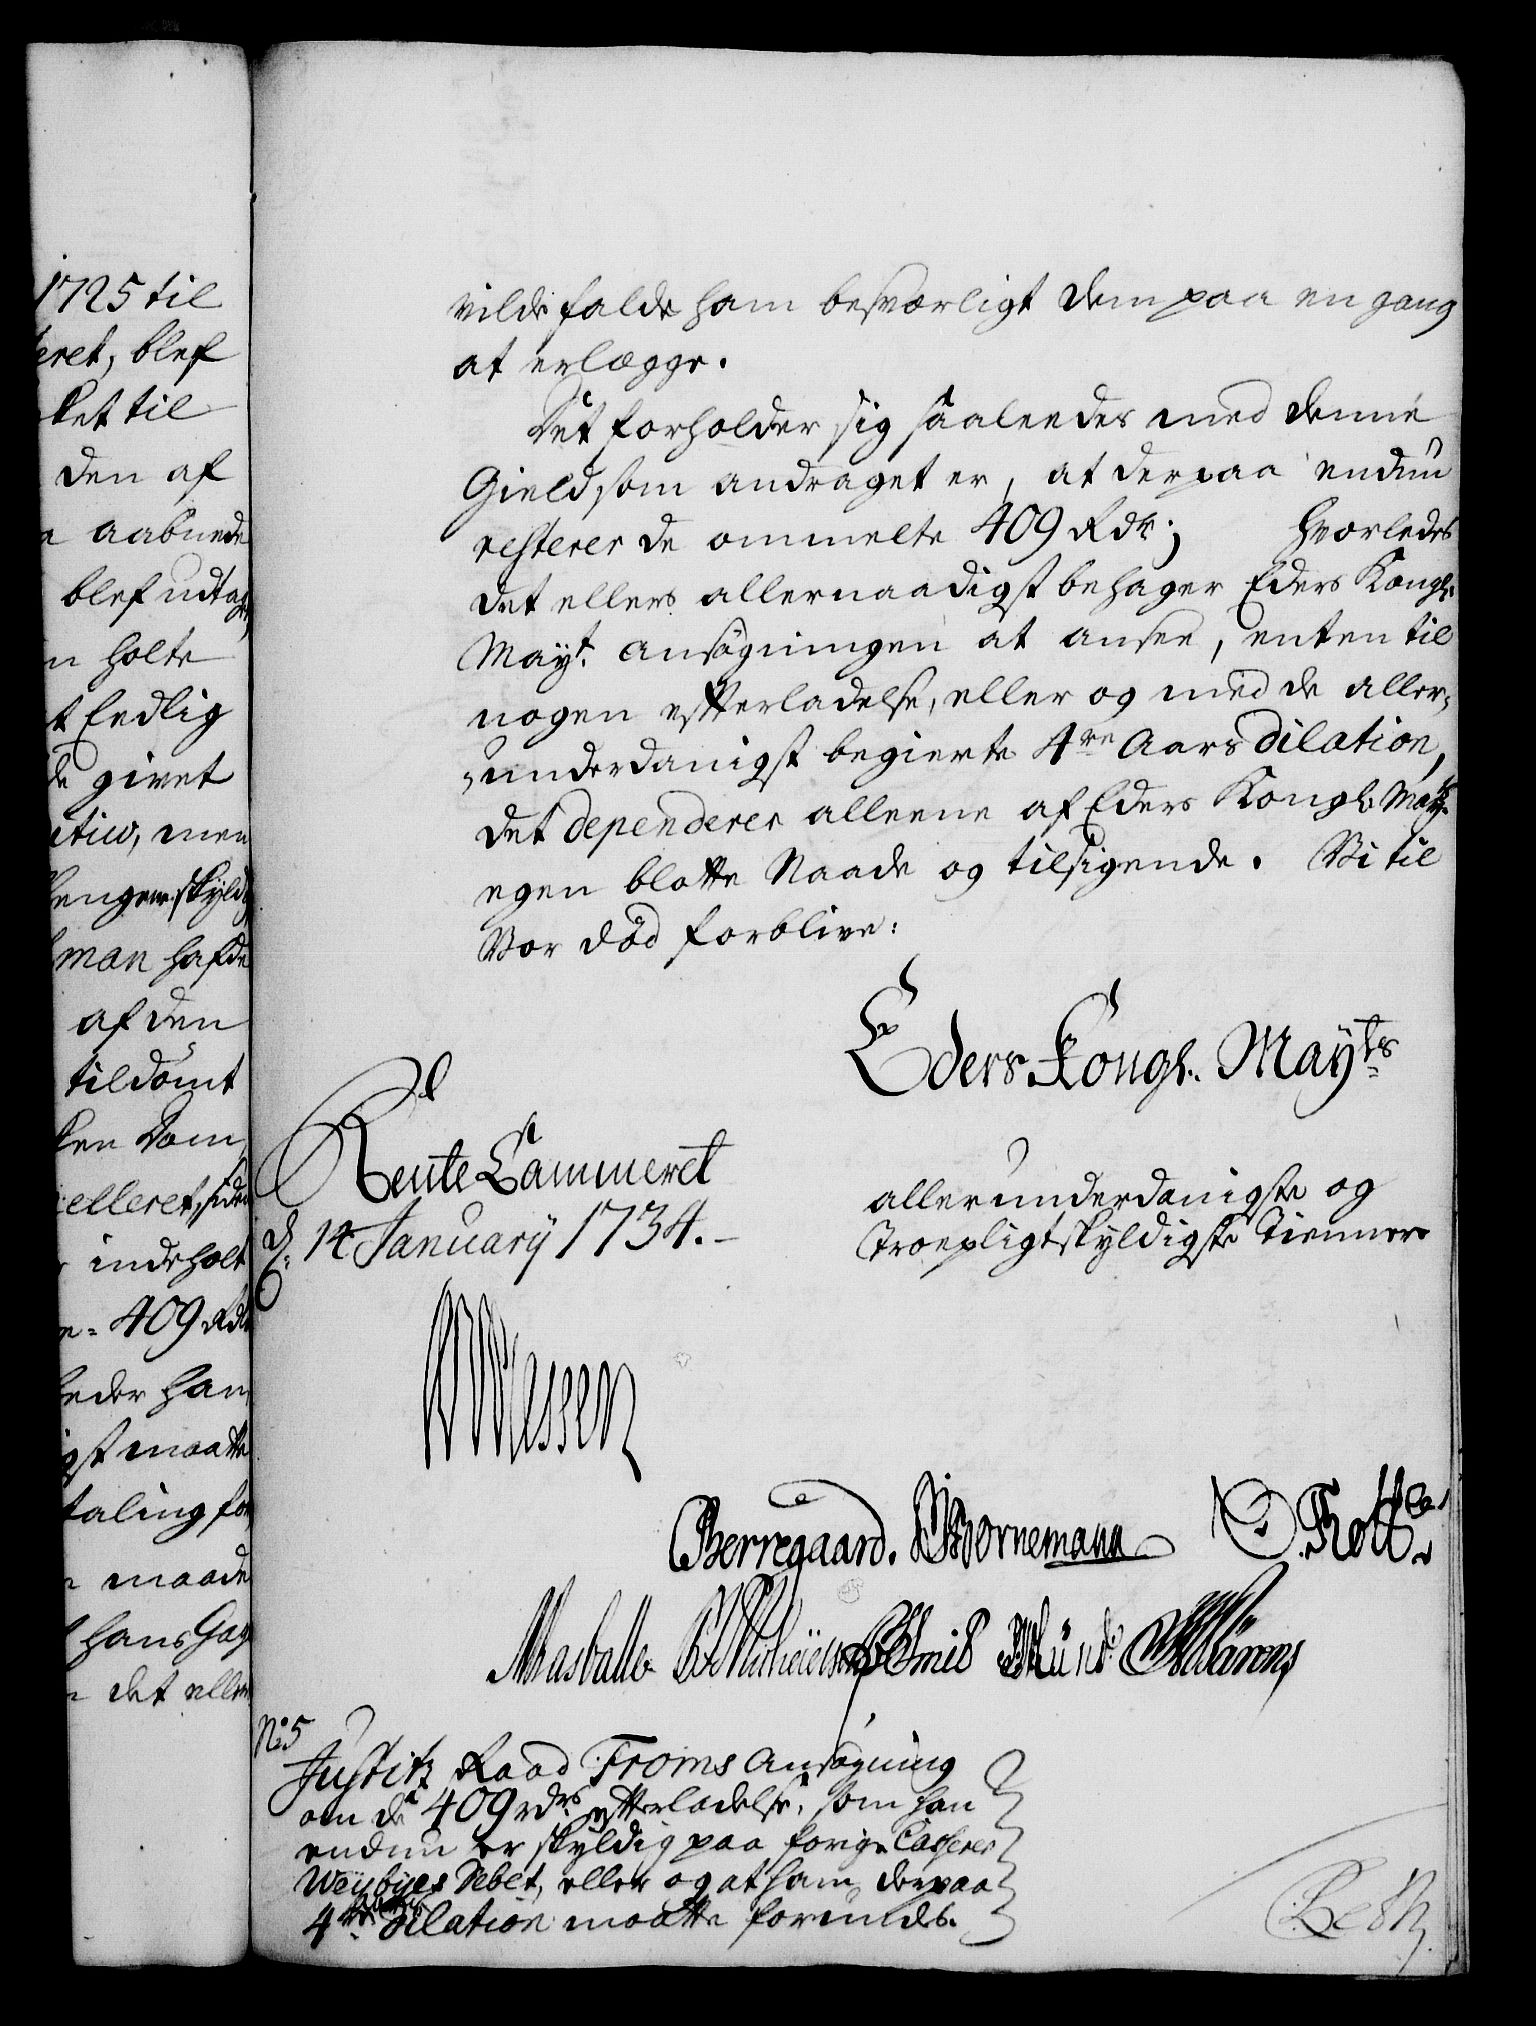 1725 til
eret, blef
ket til
den af
aabnede
blef udtag
n holte
t Endlig
de givet
ativ, men
Pengene skyld
man hafde
af den
tildömt
ken Dom
elleret, siden
indeholt
409 Rdr
beder han
igst maatte
taling for
maade
hans Gage
det eller
vilde falde ham besværligt dem paa en gang
at erlægge.
Det forholder sig saaleedes med denne
Gield som andraget er, at derpaa endnu
resterer de ommelte 409 Rdr; hvorledes
det ellers allernaadigst behager Eders Kongl.
Mayt. ansøgningen at ansee, enten til
nogen efterladelse, eller og med de aller-
underdanigst begierte 4re Aars dilation,
det dependerer alleene af Eders Kongl. Mayts
egen blotte Naade og tilsigende. Vi til
Vor död forblive:
Eders Kongl. Mayts
Rente Cammeret
d. 14 January 1734.
allerunderdanigste og
Troepligtskyldigste Tiennere
Wlessen
Berregaard. Bornemann Thott
Masballe Smid Münd Wärens
No. 5
Justitz Raad Froms Ansøgning
om de 409 rdrs efterladelse, som han
endnu er skyldig paa forige Casserer
Weybyes Debet, eller og at ham derpaa
4re Aars Dilation maatte forundes.